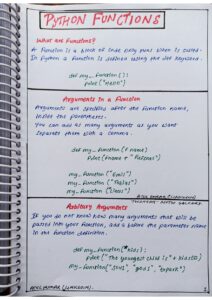 PYTHON FUNCTIONS
What are Functions?
A Function is a block of code only runs when is called.
In Python a function is defined using the def keyword.
def my_function():
print("Hello")
Arguments in a Function
Arguments are specified after the function name,
inside the parentheses.
You can add as many arguments as you want
separate them with a comma.
def my_function(fname)
print(fname + "Refsnes")
my_function("Emil")
my_function("Tobias")
my_function("Linus")
Arbitrary Arguments
If you do not know how many arguments that will be
passed into your function, add a * before the parameter name
in the function definition.
def my_function(*kids):
print("The youngest child is" + kids[2])
my_function(